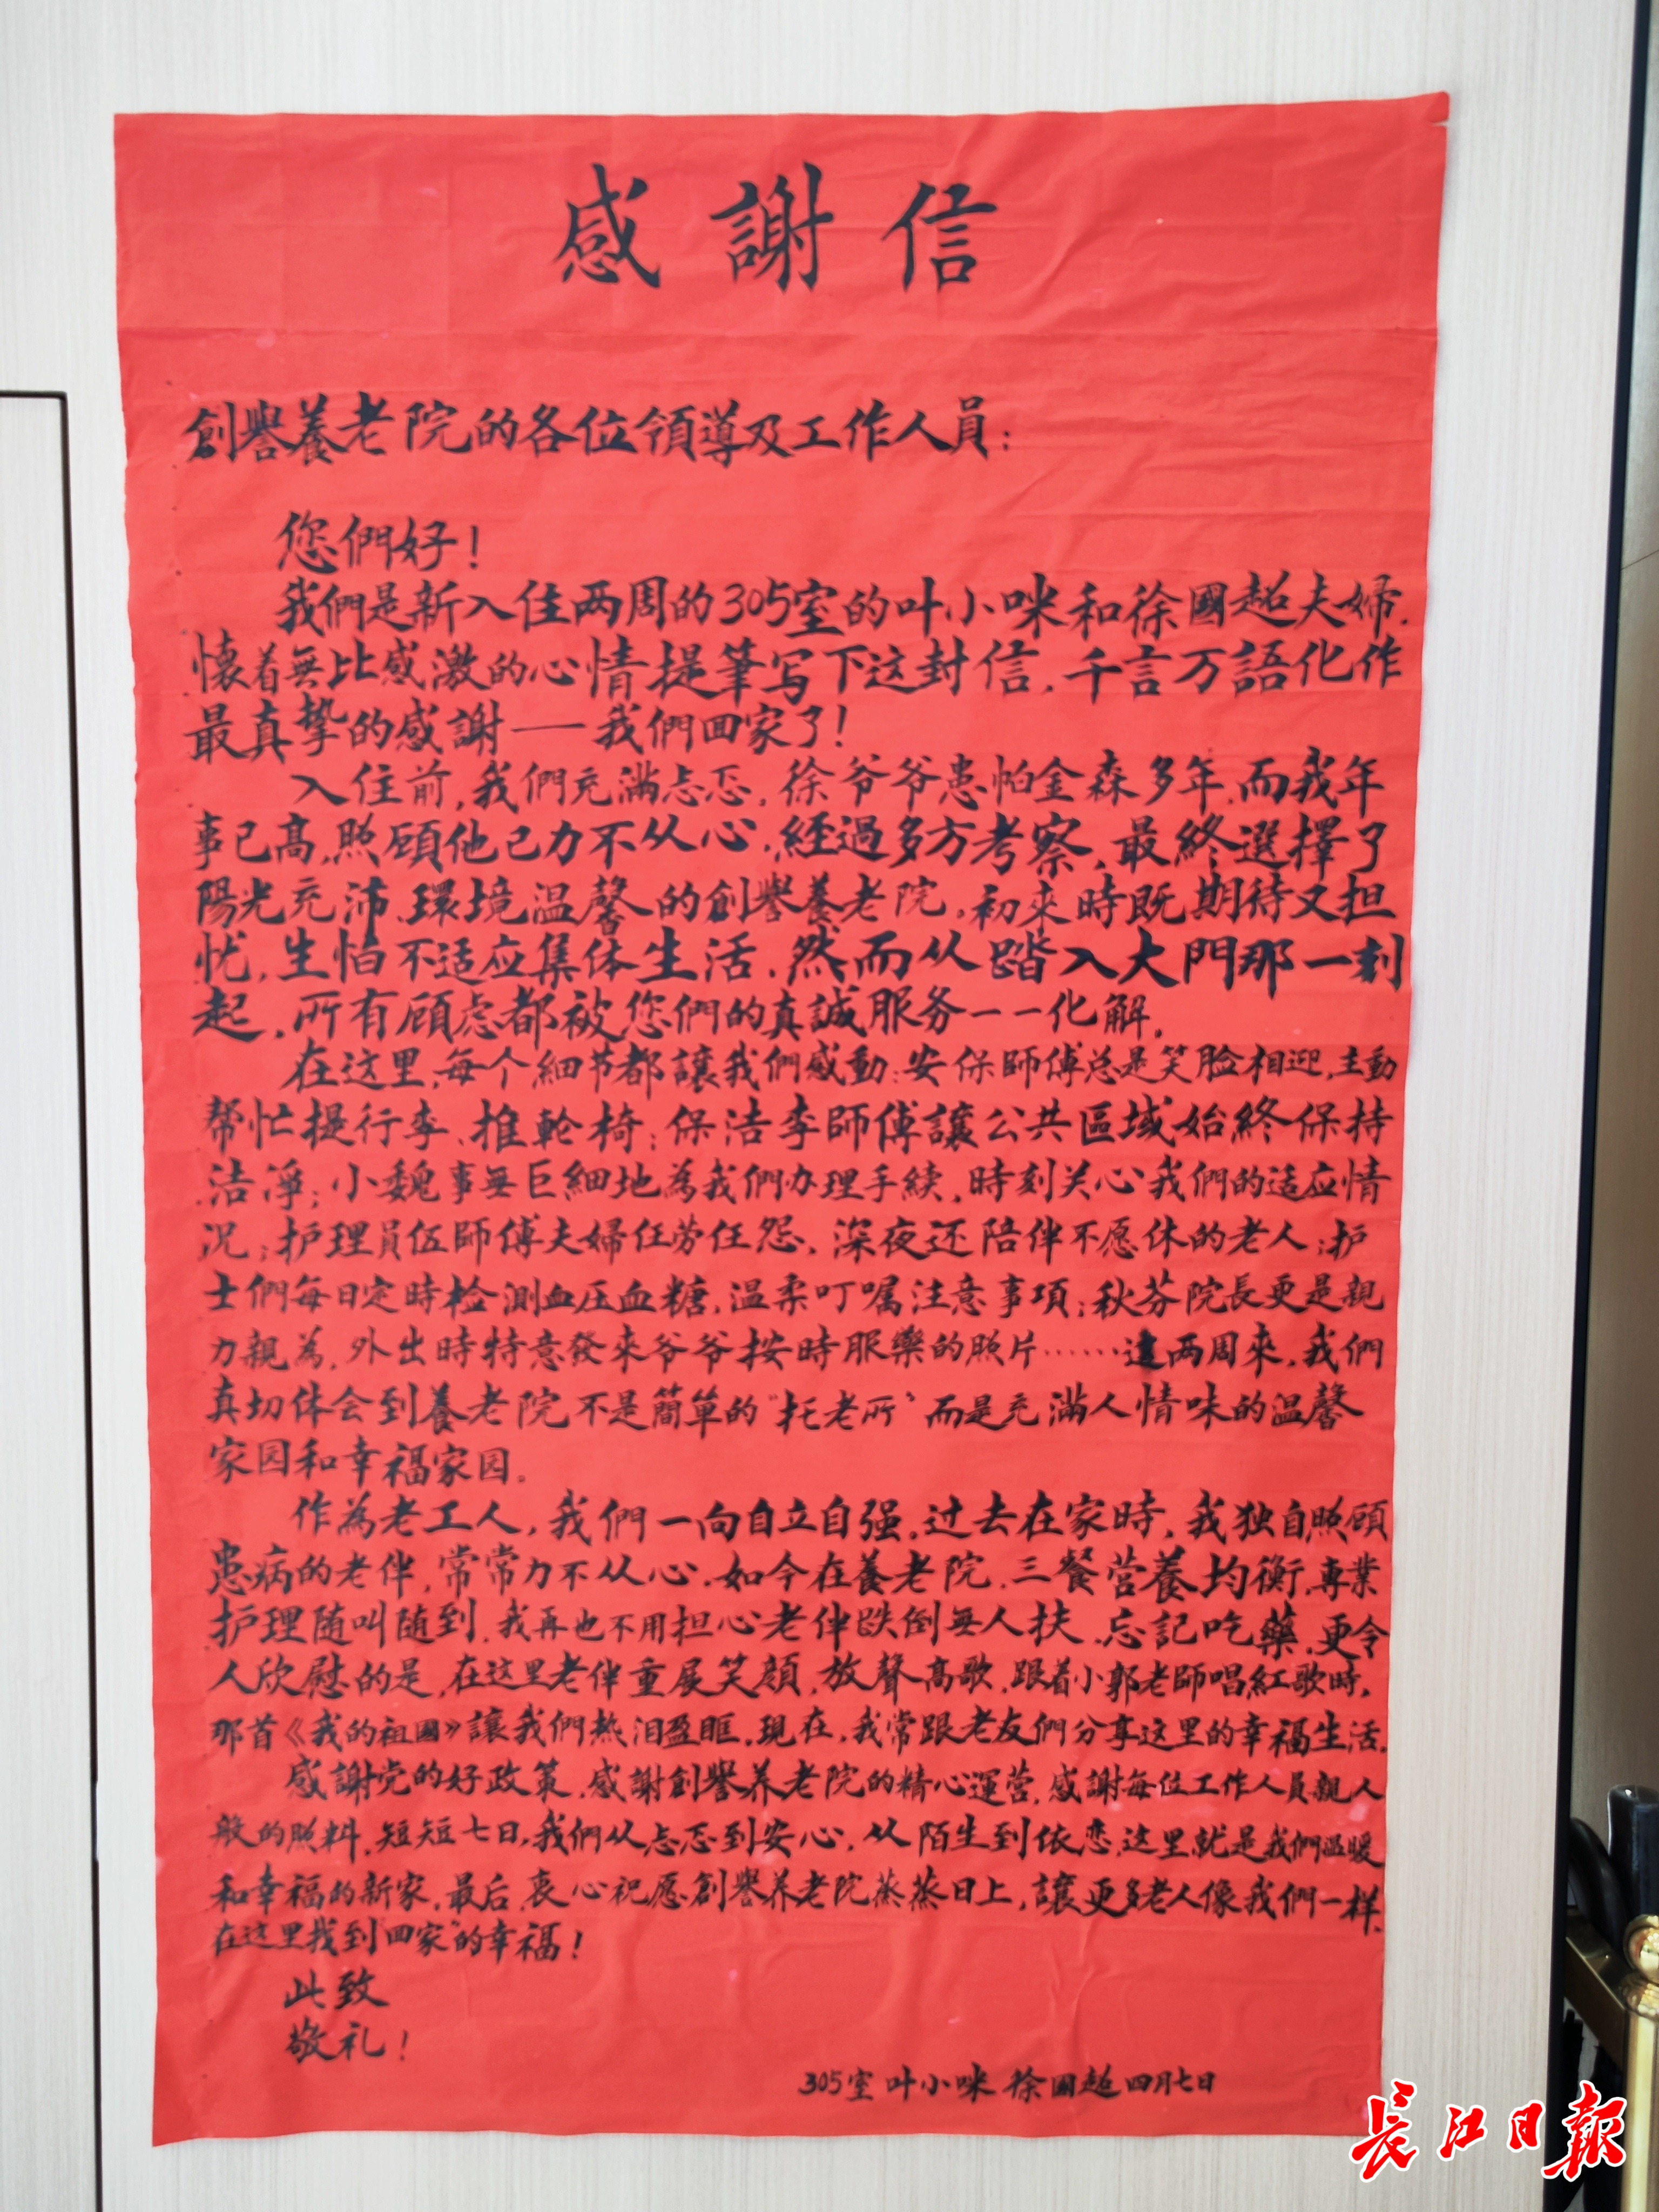 感謝信
創譽養老院的各位領導及工作人員：
您們好！
我們是新入住两周的305室的叶小咪和徐國超夫婦．
懷着無比感激的心情提筆写下这封信，千言万語化作
最真挚的感謝——我們回家了！
入住前，我們充满忐忑，徐爷爷患帕金森多年，而我年
事已高，照顧他已力不从心，經過多方考察，最終選擇了
陽光充沛、環境温馨的創譽養老院，初來時既期待又担
忧，生怕不适应集体生活，然而从踏入大門那一刻
起，所有顧虑都被您們的真誠服务一一化解，
在这里，每个細节都讓我們感動：安保師傅总是笑脸相迎，主動
帮忙提行李、推輪椅；保洁李師傅讓公共區域始終保持
洁淨；小魏事無巨細地為我們办理手續，時刻关心我們的适应情
况；护理員伍師傅夫婦任劳任怨，深夜还陪伴不愿休的老人；护
士們每日定時检測血压血糖，温柔叮嘱注意事項；秋芬院長更是親
力親為，外出時特意發來爷爷按時服藥的照片……這两周來，我們
真切体会到養老院不是簡單的“托老所”而是充满人情味的温馨
家园和幸福家园。
作為老工人，我們一向自立自强，过去在家時，我独自照顧
患病的老伴，常常力不从心．如今在養老院，三餐营養均衡，專業
护理随叫随到，我再也不用担心老伴跌倒無人扶、忘記吃藥，更令
人欣慰的是，在这里老伴重展笑顔，放聲高歌，跟着小郭老師唱紅歌時，
那首《我的祖國》讓我們热泪盈眶，現在，我常跟老友們分享这里的幸福生活．
感謝党的好政策，感謝創譽养老院的精心運营，感謝每位工作人員親人
般的照料，短短七日，我們从忐忑到安心，从陌生到依恋，这里就是我們温暖
和幸福的新家，最后，衷心祝愿創譽养老院蒸蒸日上，讓更多老人像我們一样，
在这里找到“回家”的幸福！
此致
敬礼！
305室 叶小咪 徐國超 四月七日
長江日報